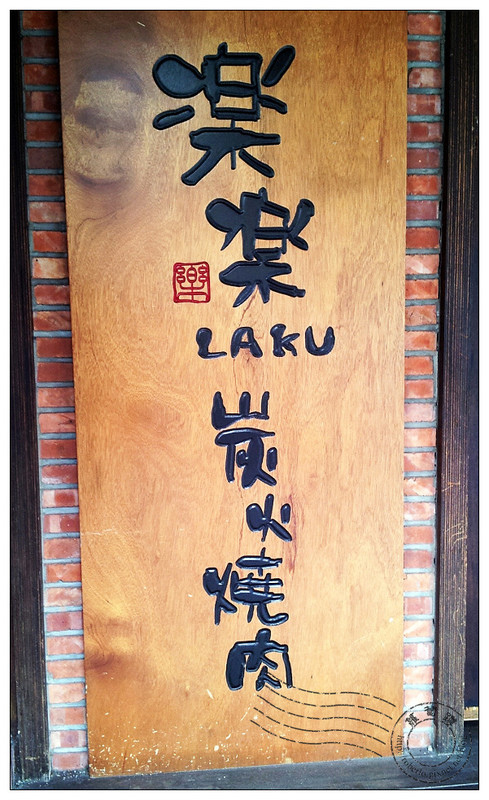 楽
楽
樂
LAKU
炭
火
燒
肉